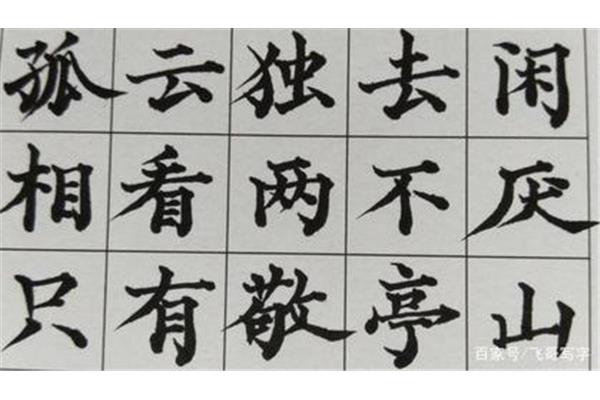 孤云独去闲
相看两不厌
只有敬亭山
百家号/飞哥写字